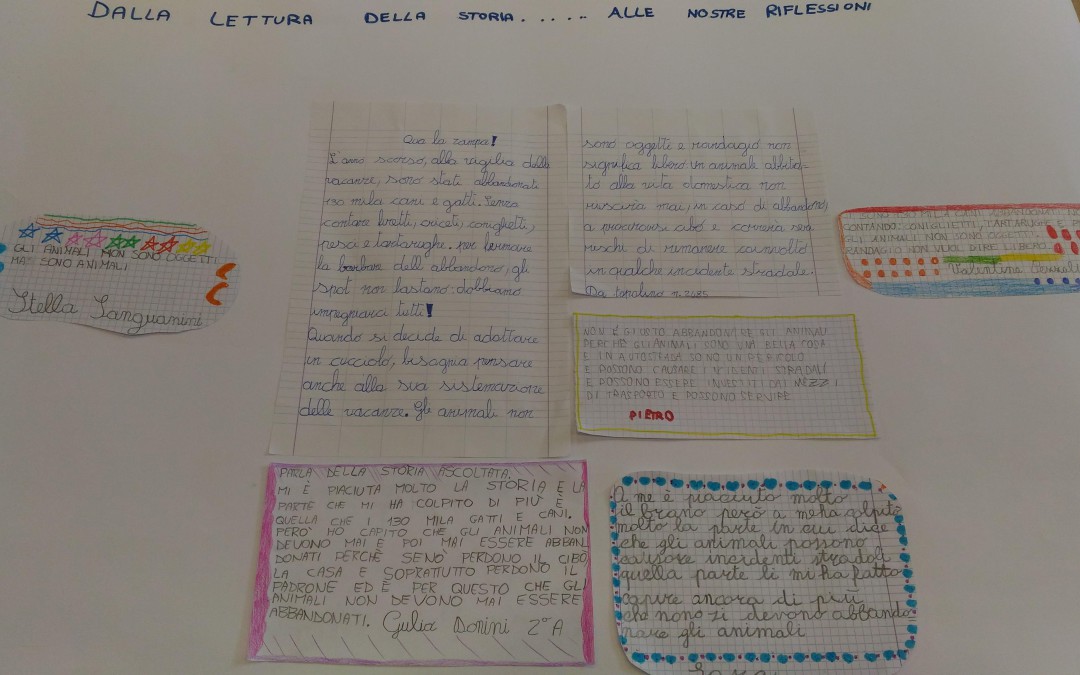 DALLA LETTURA DELLA STORIA...... ALLE NOSTRE RIFLESSIONI
Qua la zampa!
L'anno scorso, alla vigilia delle
vacanze, sono stati abbandonati
130 mila cani e gatti. Senza
contare furetti, criceti, coniglietti,
pesci e tartarughe. per fermare
la barbarie dell'abbandono, gli
spot non bastano: dobbiamo
impegnarci tutti!
Quando si decide di adottare
un cucciolo, bisogna pensare
anche alla sua sistemazione
delle vacanze. Gli animali non
sono oggetti e randagio non
significa libero. Un animale abitua=
to alla vita domestica non
riuscirà mai, in caso di abbandono,
a procurarsi cibo e correrà seri
rischi di rimanere coinvolto
in qualche incidente stradale.
Da topolino n. 2085
GLI ANIMALI NON SONO OGGETTI
MA SONO ANIMALI
Stella Sanguanini
SONO 130 MILA CANI
CONTANDO CONIGLIETTI, TARTARUGHE E
GLI ANIMALI NON SONO OGGETTI E
RANDAGIO NON VUOL DIRE LIBERO.
Valentina
NON È GIUSTO ABBANDONARE GLI ANIMALI
PERCHÈ GLI ANIMALI SONO UNA BELLA COSA
E IN AUTOSTRADA SONO UN PERICOLO
E POSSONO CAUSARE INCIDENTI STRADALI
E POSSONO ESSERE INVESTITI DAI MEZZI
DI TRASPORTO E POSSONO SERVIRE
PIETRO
PARLA DELLA STORIA ASCOLTATA.
MI È PIACIUTA MOLTO LA STORIA E LA
PARTE CHE MI HA COLPITO DI PIÙ È
QUELLA CHE I 130 MILA GATTI E CANI.
PERÒ HO CAPITO CHE GLI ANIMALI NON
DEVONO MAI E POI MAI ESSERE ABBAN
DONATI PERCHÈ SENÒ PERDONO IL CIBO,
LA CASA E SOPRATTUTTO PERDONO IL
PADRONE ED È PER QUESTO CHE GLI
ANIMALI NON DEVONO MAI ESSERE
ABBANDONATI. Gulia Donini 2ª A
A me è piaciuto molto
il brano però a me ha colpito
molto la parte in cui dice
che gli animali possono
causare incidenti stradali
quella parte lì mi ha fatto
capire ancora di più
che non si devono abbando=
nare gli animali